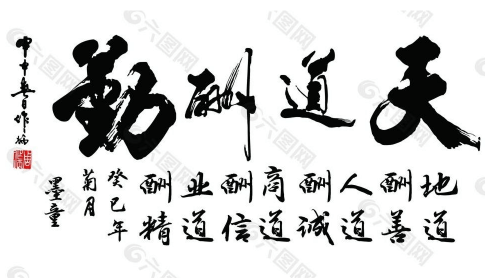 天道酬勤
地道
酬善
人道
酬诚
商道
酬信
业道
酬精
癸巳年
菊月
墨童
六图网